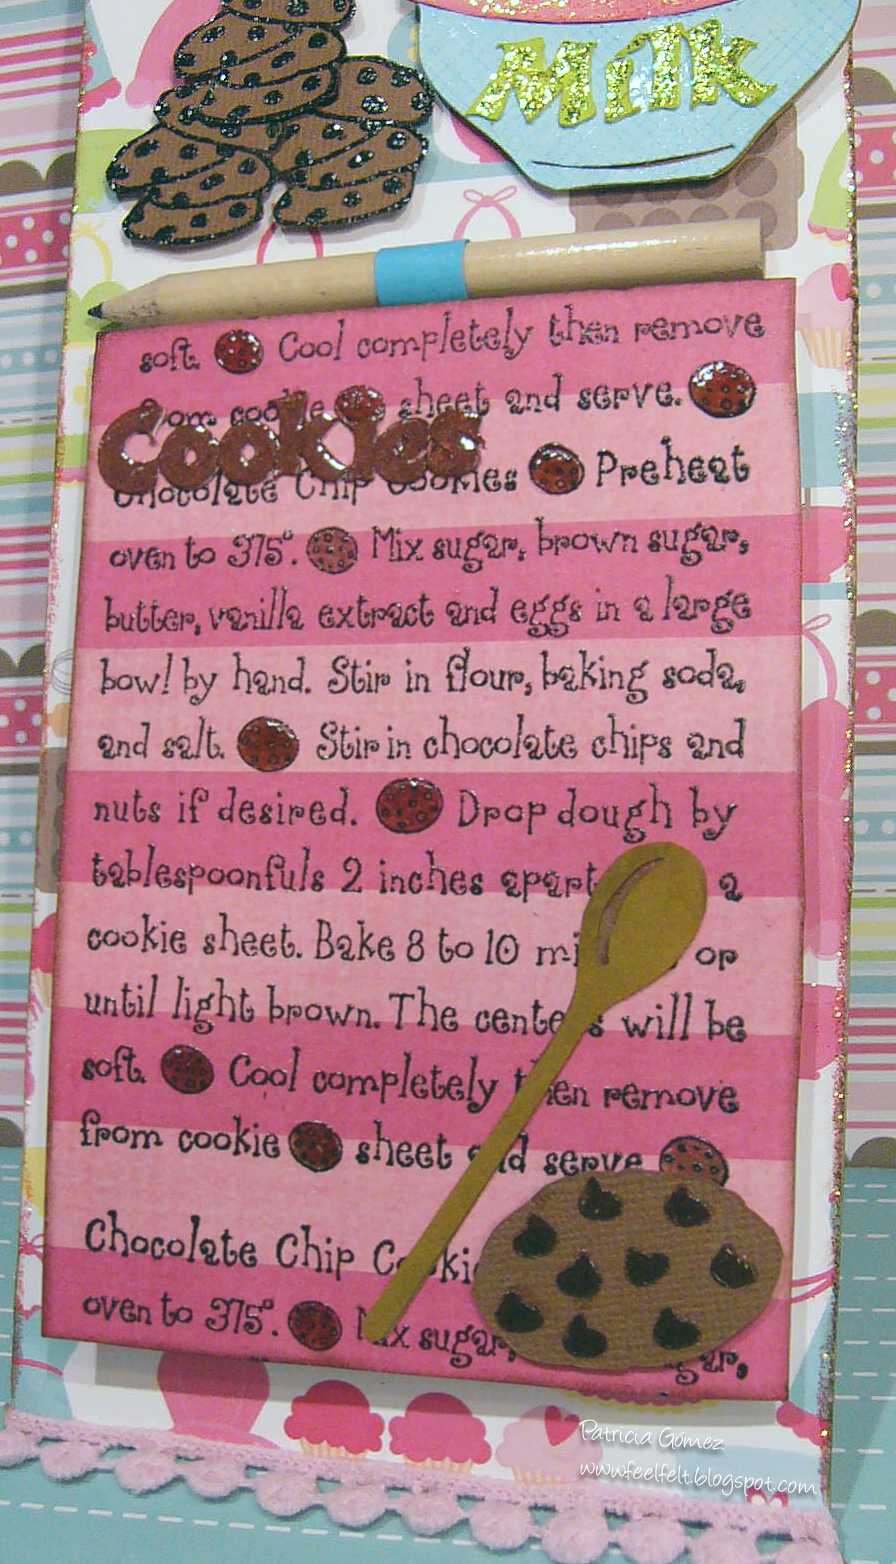 Milk
soft. Cool completely then remove
cookie sheet and serve.
Cookies
Chocolate Chip Cookies Preheat
oven to 375°. Mix sugar, brown sugar,
butter, vanilla extract and eggs in a large
bowl by hand. Stir in flour, baking soda,
and salt. Stir in chocolate chips and
nuts if desired. Drop dough by
tablespoonfuls 2 inches apart a
cookie sheet. Bake 8 to 10 or
until light brown. The centers will be
soft. Cool completely then remove
from cookie sheet and serve
Chocolate Chip
oven to 375°. Mix sugar,
Patricia Gómez
www.feelfelt.blogspot.com